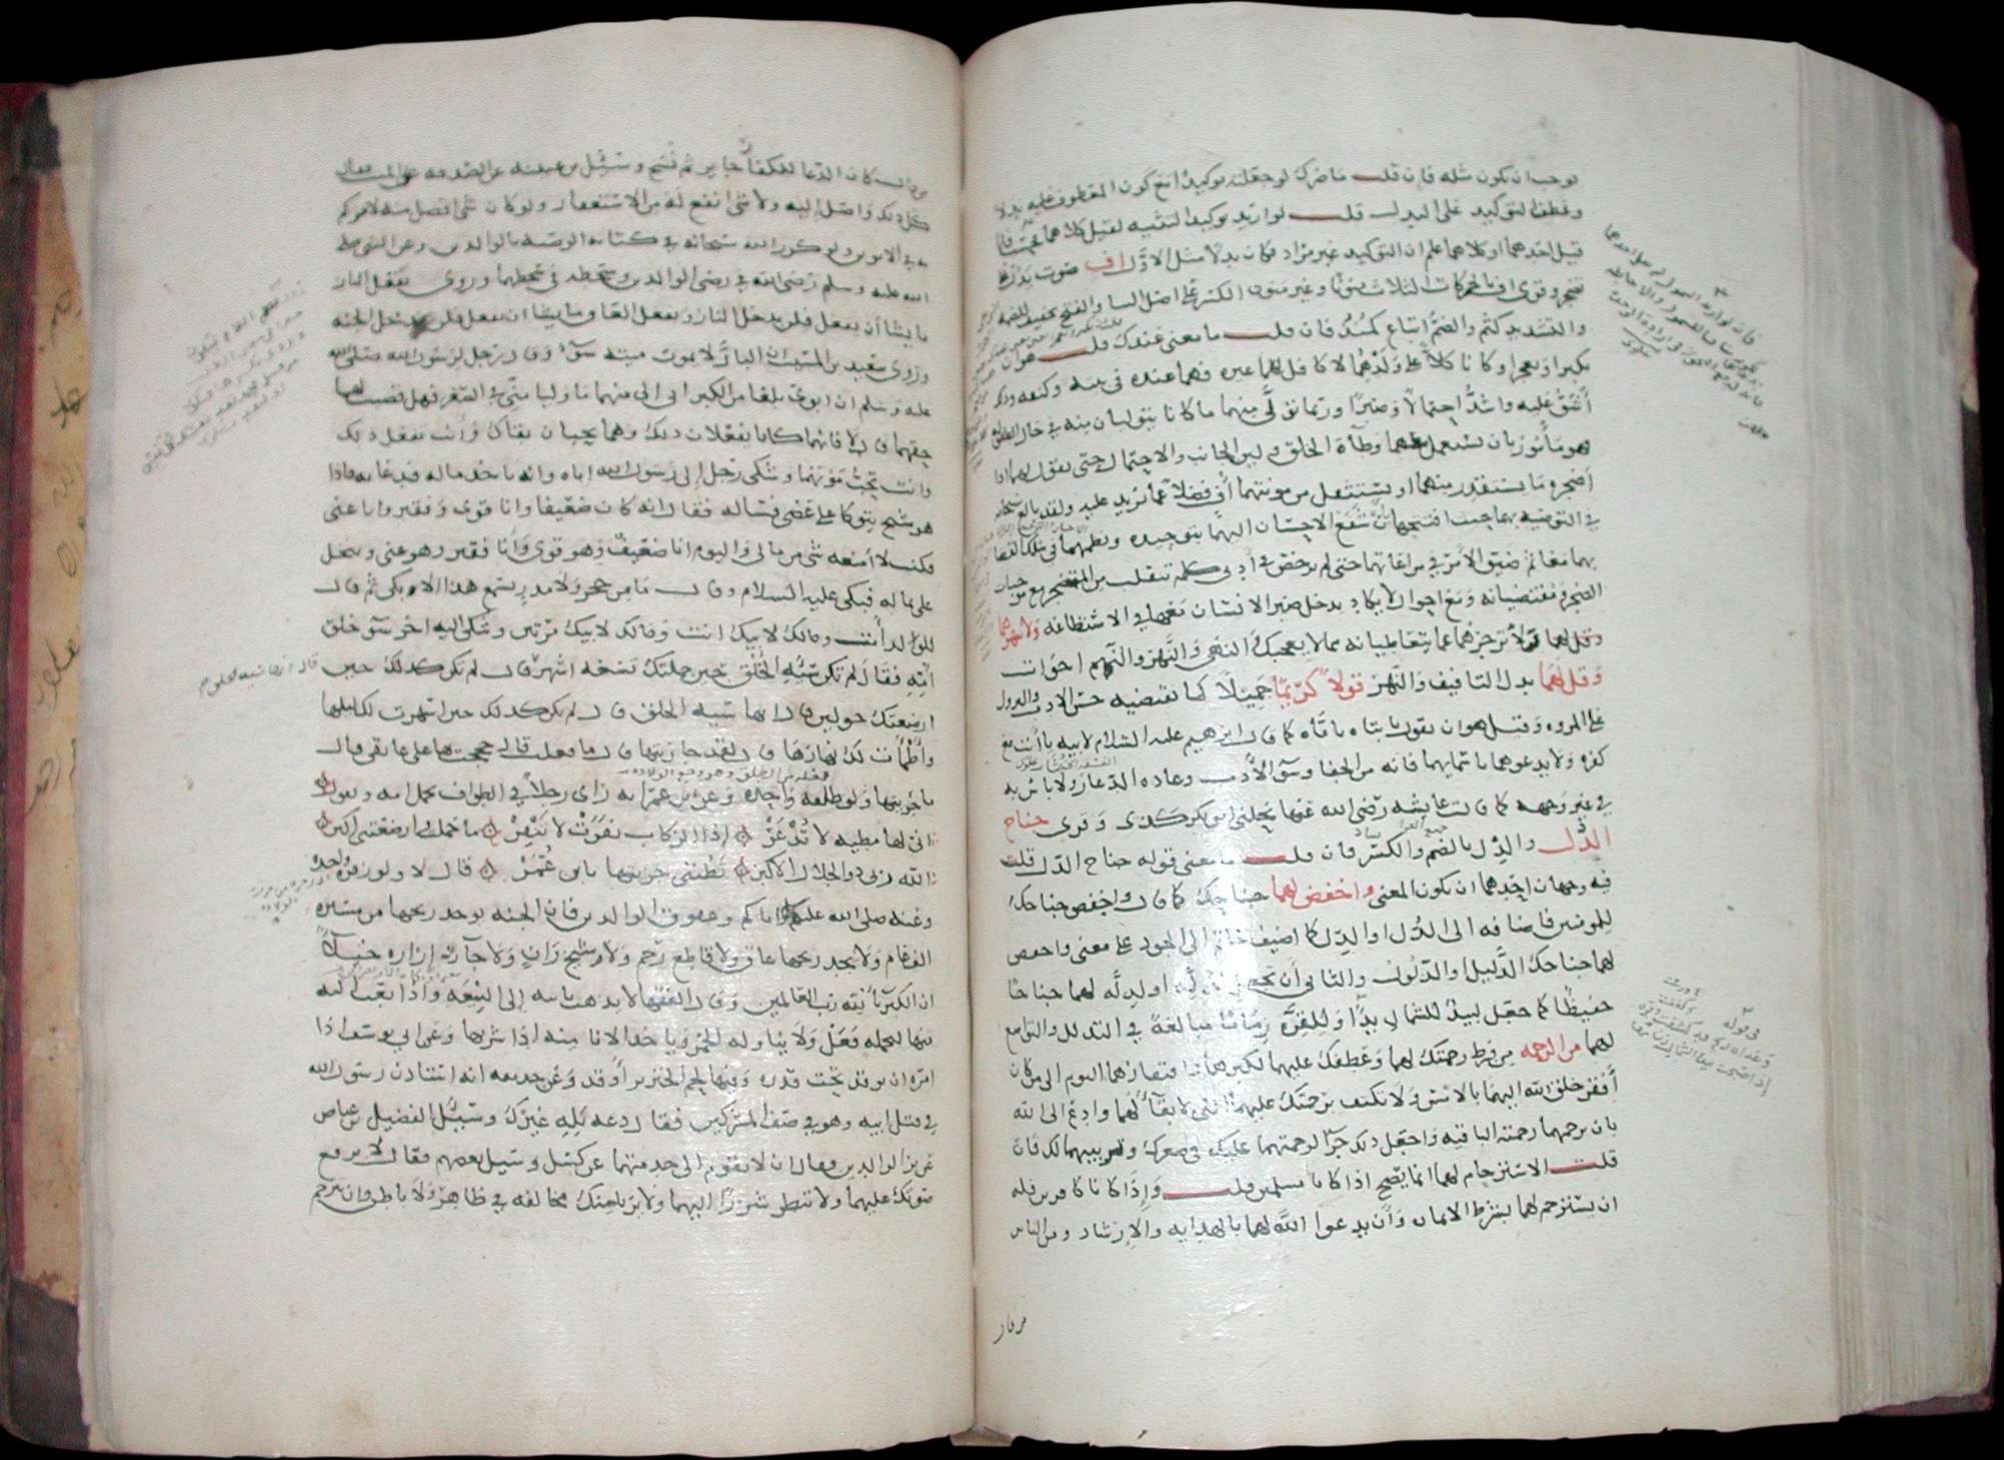 لوجب ان يكون مثله فإن قلت ما ضرك لو جعلته توكيدا مع كون المعطوف عليه بدلا
وعطفا لتوكيد على البدل قلت لو اريد توكيد التثنيه لقيل كلاهما فحسب فلما
قيل احدهما او كلاهما علم ان التوكيد غير مراد فكان بدلا مثل الاول اف صوت يدل على
تضجر وقرئ اف بالحركات الثلاث منونا وغير منون الكسر على اصل البنا والفتح تخفيف للضمه
والتشديد كثم والضم اتباع كمنذ فان قلت ما معنى عندك قلت هو ان
يكبرا ويعجزا وكانا كلا على ولدهما لا كافل لهما غيره فهما عنده في بيته وكنفه وذلك
أشق عليه واشد احتمالا وصبرا وربما تولى منهما ما كانا يتوليان منه في حال الطفوله
فهو مأمور بان يستعمل معهما وطأة الخلق ولين الجانب والاحتمال حتى لا يقول لهما اذا
أضجره ما يستقذر منهما او يستثقل من مؤنتهما أف فضلا عما يزيد عليه ولقد بالغ سبحانه
في التوصيه بهما حيث افتتحها بأن شفع الاحسان اليهما بتوحيده ونظمهما في سلك القضا
بهما معا ثم ضيق الأمر في مراعاتهما حتى لم يرخص في أدنى كلمة تنفلت من المتضجر مع موجبات
الضجر ومقتضياته ومع احوال لا يكاد يدخل صبر الانسان معها في الاستطاعه ولا تنهرهما
ولا تزجرهما عما يتعاطيانه مما لا يعجبك والنهى والنهر والنهم اخوات
وقل لهما بدل التافيف والنهر قولا كريما جميلا كما يقتضيه حسن الادب والنزول
على المروه وقيل هو ان يقول يا ابتاه يا اماه كما قال ابرهيم عليه السلام لابيه يا أبت مع
كفره ولا يدعوهما باسمائهما فانه من الجفا وسو الأدب وعاده الدعار ولا باس به
في غير وجهه كما قالت عايشه رضي الله عنها نحلني ابو بكر كذى وقرئ جناح
الذل والذل بالضم والكسر فان قلت ما معنى قوله جناح الذل قلت
فيه وجهان احدهما ان يكون المعنى واخفض لهما جناحك كما قال واخفض جناحك
للمومنين فاضافه الى الذل او الذل كما اضيف حاتم الى الجود على معنى واخفض
لهما جناحك الذليل او الذلول والثاني أن تجعل لذله او لذله لهما جناحا
خفيضا كما جعل لبيد للشمال يدا وللقرة زماما مبالغة في التذلل والتواضع
لهما من الرحمه من فرط رحمتك لهما وعطفك عليهما لكبرهما وافتقارهما اليوم الى من كان
أفقر خلق الله اليهما بالامس ولا تكتف برحمتك عليهما التي لا بقاء لها وادع الى الله
بان يرحمهما رحمته الباقيه واجعل ذلك جزا لرحمتهما عليك في صغرك وتربيتهما لك فان
قلت الاسترحام لهما انما يصح اذا كانا مسلمين قلت وإذا كانا كافرين فله
ان يسترحم لهما بشرط الايمان وأن يدعوا الله لهما بالهدايه والإرشاد ومن الناس
من قال
من قال كان الدعا للكفار جايز ثم نسخ وسئل ابن عيينه عن الصدقه على الميت فقال
كل ذلك واصل إليه ولا شي انفع له من الاستغفار ولو كان شي افضل منه لامركم
به في الابوين ولو كرر الله سبحانه في كتابه الوصيه بالوالدين وعن النبي صلى
الله عليه وسلم رضى الله في رضى الوالدين وسخطه في سخطهما وروى يفعل البار
ما يشا أن يفعل فلن يدخل النار ويفعل العاق ما يشا ان يفعل فلن يدخل الجنه
وروى سعيد بن المسيب ان البار لا يموت ميته سوء وقال رجل لرسول الله صلى الله
عليه وسلم ان ابوي بلغا من الكبر انى الى منهما ما وليا منى في الصغر فهل قضيتهما
حقهما قال لا فانهما كانا يفعلان ذلك وهما يحبان بقاك وأنت تفعل ذلك
وانت تحب موتهما وشكى رجل إلى رسول الله اباه وانه ياخذ ماله فدعا به فاذا
هو شيخ يتوكا على عصى فساله فقال انه كان ضعيفا وانا قوى وفقيرا وانا غنى
فكنت لا أمنعه شي من مالي واليوم انا ضعيف وهو قوى وأنا فقير وهو غنى ويبخل
على بماله فبكى عليه السلام وقال ما من حجر ولا مدر يسمع هذا الا بكى ثم قال
للولد أنت ومالك لابيك انت ومالك لابيك مرتين وشكى اليه اخر سو خلق
امه فقال لم تكن سيئه الخلق حين حملتك تسعه اشهر قال لم تكن كذلك حين
ارضعتك حولين قال انها سيئه الخلق قال لم تكن كذلك حين اسهرت لك ليلها
وأظمأت لك نهارها قال لقد جازيتها قال ما فعلت قال حججت بها على عاتقى قال
ما جزيتها ولو طلقه واحده وعن ابن عمر انه راى رجلا في الطواف يحمل امه ويقول
انى لها مطيه لا تذعر إذا الركاب نفرت لا تنفر ما حملت وارضعتني اكثر
الله ربي ذو الجلال الاكبر تظنني جزيتها يا بن عمر قال لا ولو زفره واحده
وعنه صلى الله عليه اياكم وعقوق الوالدين فان الجنه يوجد ريحها من مسيره
الف عام ولا يجد ريحها عاق ولا قاطع رحم ولا شيخ زان ولا جار إزاره خيلاً
ان الكبرياء لله رب العالمين وقال الفقها لا يذهب بابيه إلى البيعه وإذا بعث اليه
منها ليحمله فعل ولا يناوله الخمر وياخذ الانا منه اذا شربها وعن ابي يوسف اذا
امره ان يوقد تحت قدره وفيها لحم الخنزير أوقد وعن حذيفه انه استاذن رسول الله
في قتل ابيه وهو في صف المشركين فقال دعه يليه غيرك وسئل الفضيل بن عياض
عن بر الوالدين فقال ان لا تقوم الى خدمتهما عن كسل وسيل بعضهم فقال لا ترفع
صوتك عليهما ولا تنظر شزرا اليهما ولا يريا منك مخالفه في ظاهر ولا باطن وان ترحم